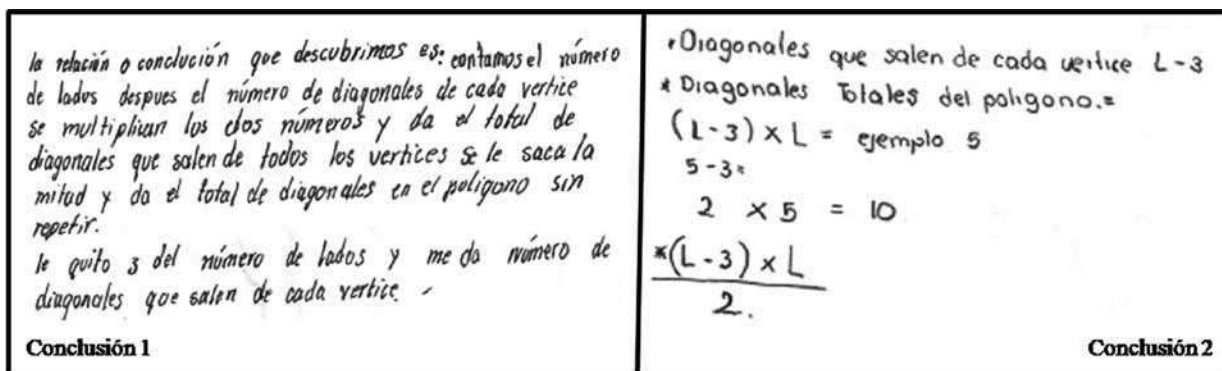 la relación o conclución que descubrimos es: contamos el número
de lados despues el número de diagonales de cada vertice
se multiplican los dos números y da el total de
diagonales que salen de todos los vertices se le saca la
mitad y da el total de diagonales en el poligono sin
repetir.
le quito 3 del número de lados y me da número de
diagonales que salen de cada vertice.
Conclusión 1
•Diagonales que salen de cada vertice L-3
* Diagonales Totales del poligono.=
(L-3) x L = ejemplo 5
5-3=
2 x 5 = 10
*(L-3) x L
2.
Conclusión 2